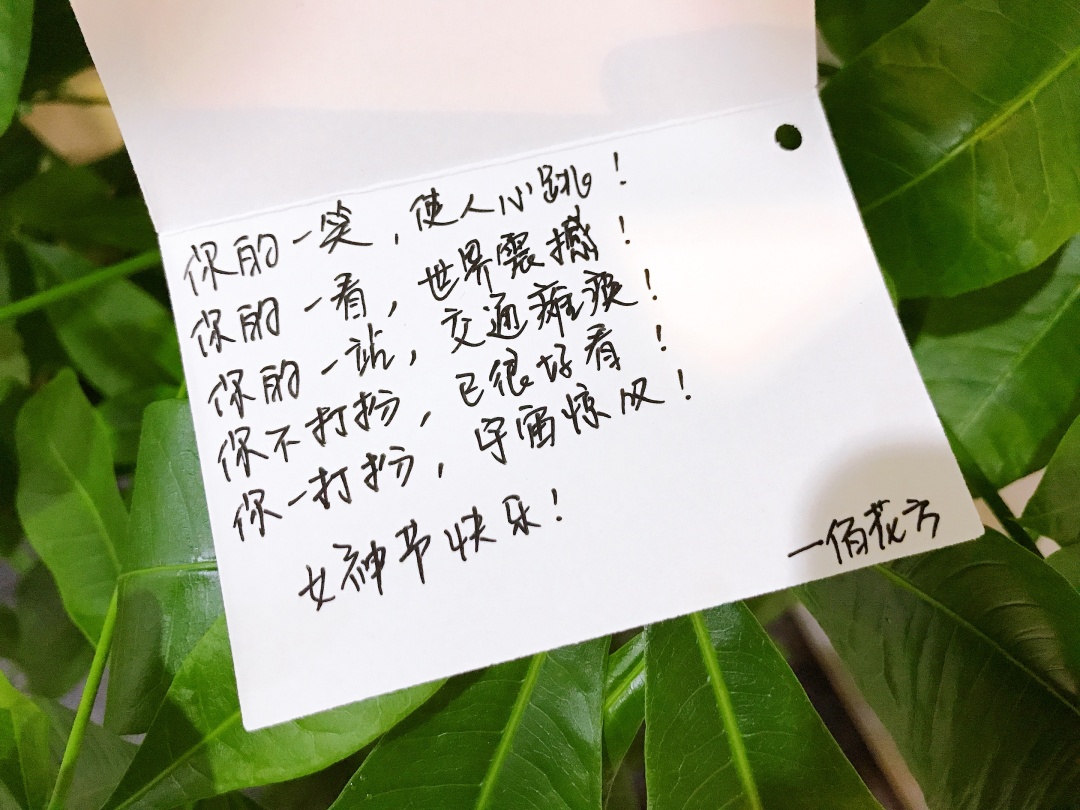 你的一笑，使人心跳！
你的一看，世界震撼！
你的一站，交通瘫痪！
你不打扮，已很好看！
你一打扮，宇宙惊叹！
女神节快乐！
一佰花方